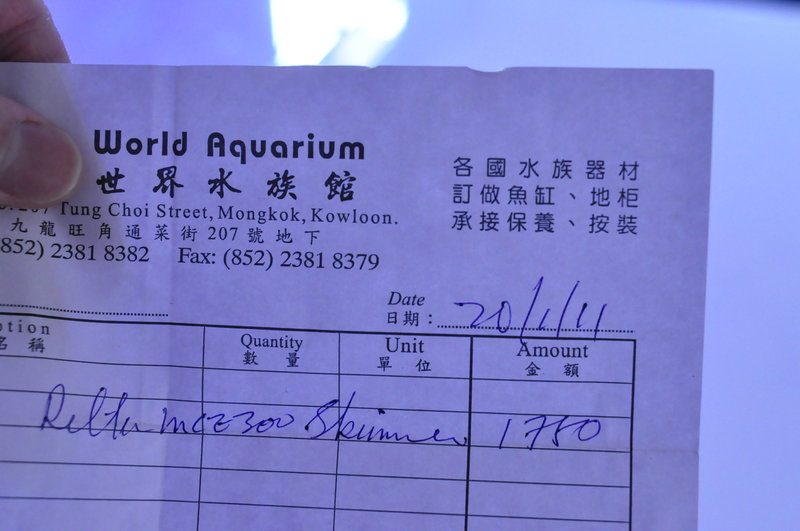 World Aquarium
世界水族館
207 Tung Choi Street, Mongkok, Kowloon.
九龍旺角通菜街207號地下
(852) 2381 8382 Fax: (852) 2381 8379
各國水族器材
訂做魚缸、地柜
承接保養、按裝
Date
日期： 20/1/11
ption Quantity Unit Amount
名稱 數量 單位 金額
Delta MCE300 Skimmer 1750